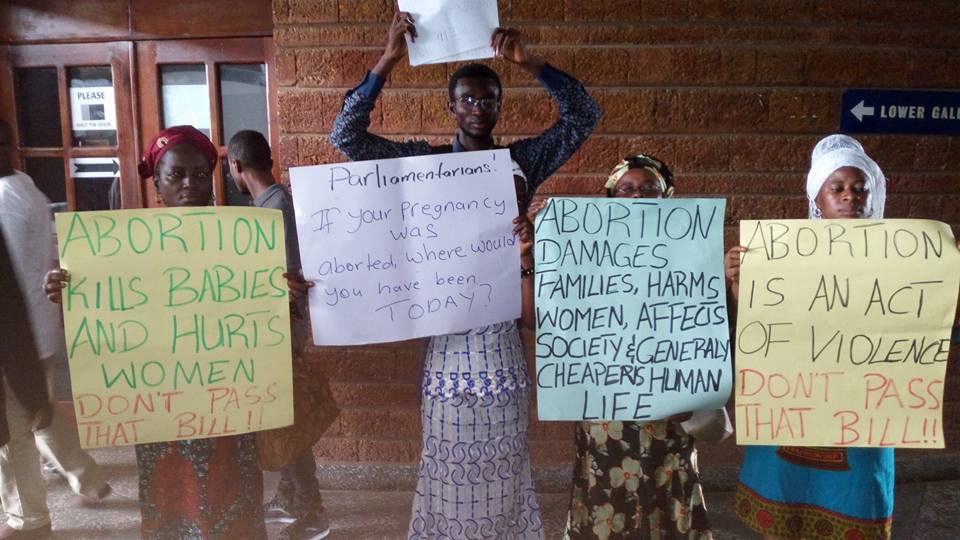 PLEASE
LOWER GALL
ABORTION
KILLS BABIES
AND HURTS
WOMEN
DON'T PASS
THAT BILL!!
Parliamentarians!
If your Pregnancy
was
aborted, where would
you have been
TODAY?
ABORTION
DAMAGES
FAMILIES, HARMS
WOMEN, AFFECTS
SOCIETY & GENERALY
CHEAPENS HUMAN
LIFE
ABORTION
IS AN ACT
OF VIOLENCE
DON'T PASS
THAT BILL!!